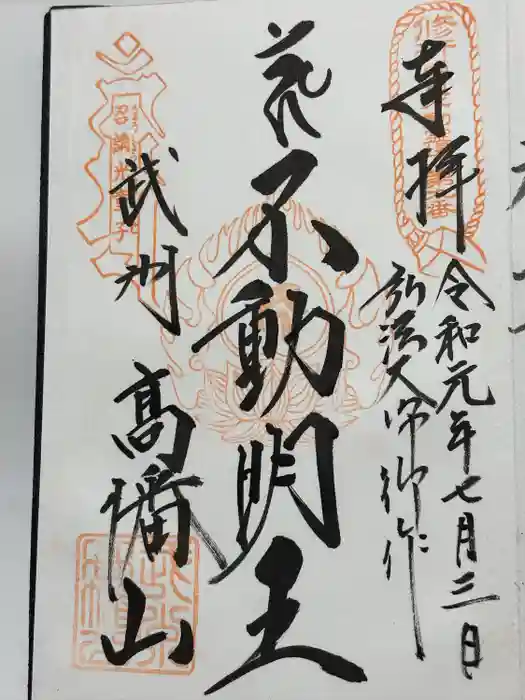 奉拝
令和元年七月三日
弘法大師御作
荒不動明王
武州
高幡山